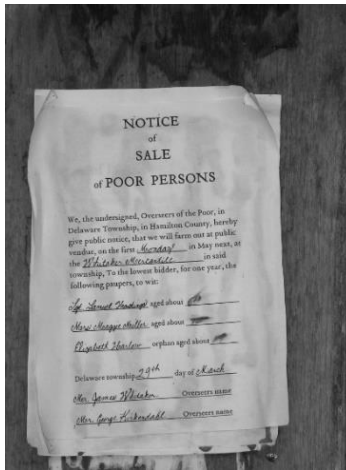 NOTICE
of
SALE
of POOR PERSONS
We, the undersigned, Overseers of the Poor, in
Delaware Township, in Hamilton County, hereby
give public notice, that we will farm out at public
vendue, on the first Monday in May next, at
the Whitaker Mercantile in said
township, To the lowest bidder, for one year, the
following paupers, to wit:
Samuel aged about
Maggie Miller aged about
Elizabeth Harlow orphan aged about
Delaware township 29th day of March
Mr. James Whitaker Overseers name
Mr. George Kirkendahl Overseers name